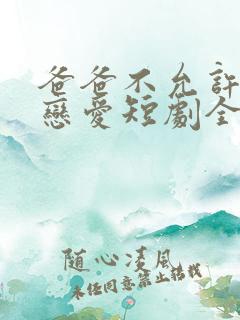 爸爸不允許
戀愛短劇全
随心凌風
未经同意禁止转载